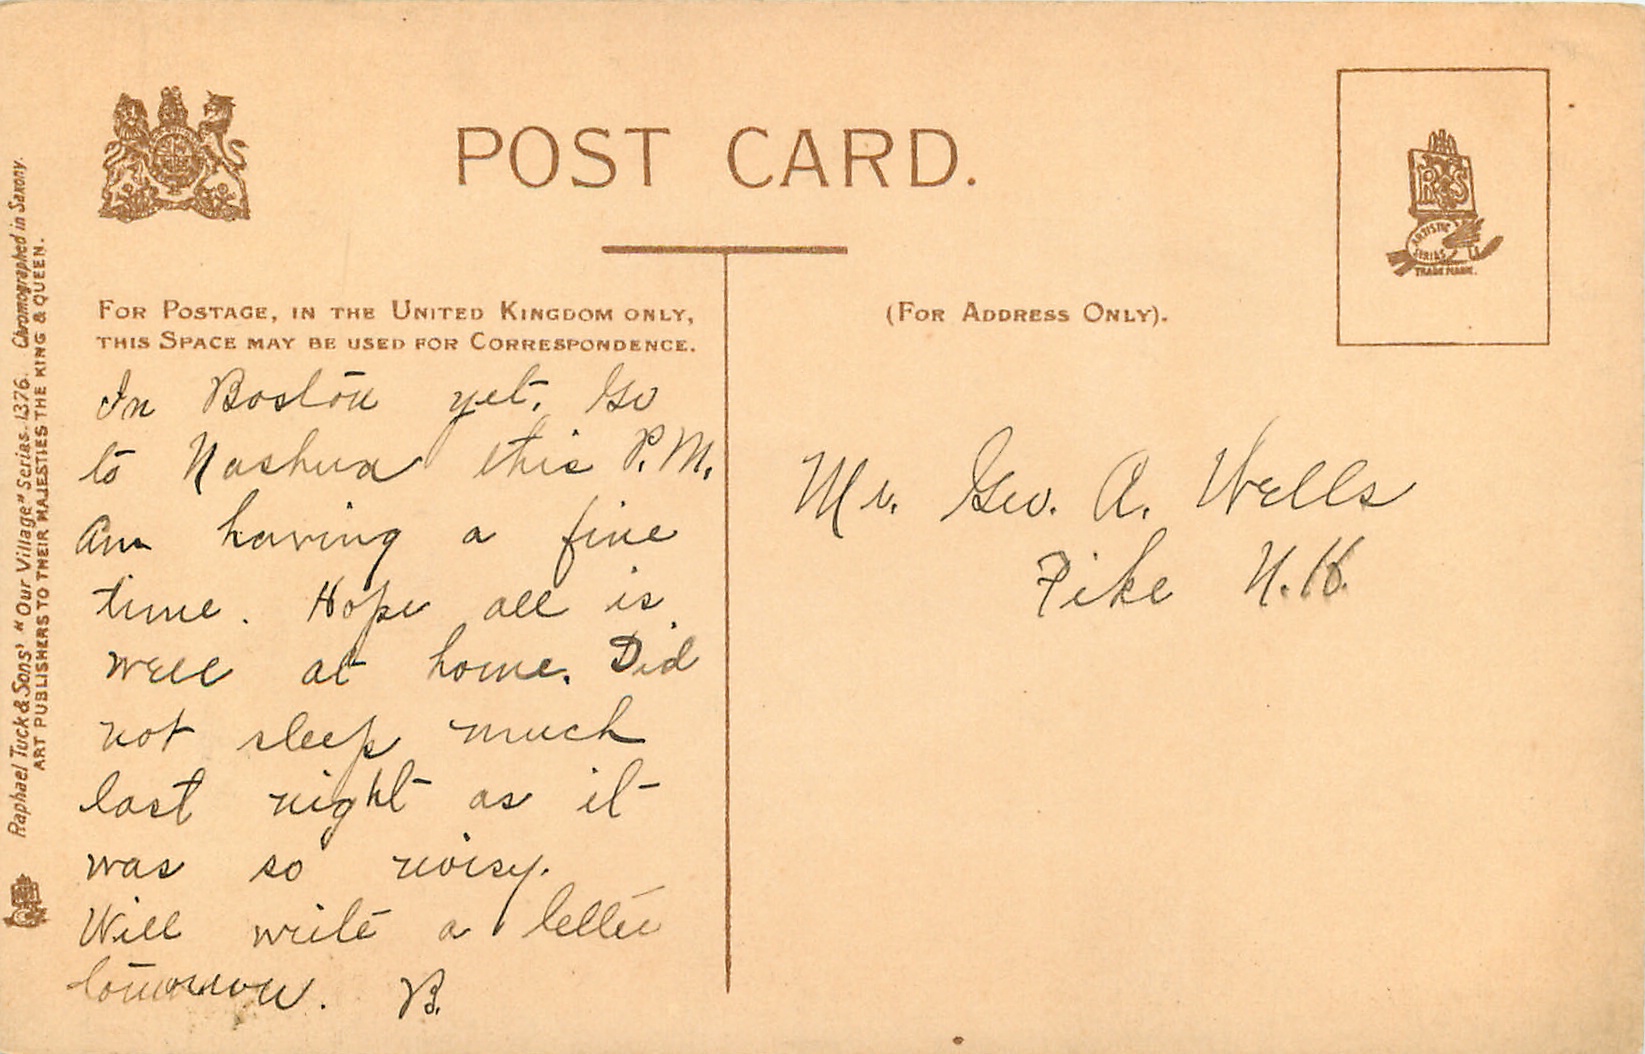 POST CARD.
FOR POSTAGE, IN THE UNITED KINGDOM ONLY,
THIS SPACE MAY BE USED FOR CORRESPONDENCE.
(FOR ADDRESS ONLY).
R T S
ARTISTIC
SERIES
TRADE MARK.
Raphael Tuck & Sons' "Our Village" Series 1376. Chromographed in Saxony.
ART PUBLISHERS TO THEIR MAJESTIES THE KING & QUEEN.
In Boston yet. Go
to Nashua this P.M.
Am having a fine
time. Hope all is
well at home. Did
not sleep much
last night as it
was so noisy.
Will write a letter
tomorrow. B.
Mr. Geo. A. Wells
Pike N.H.